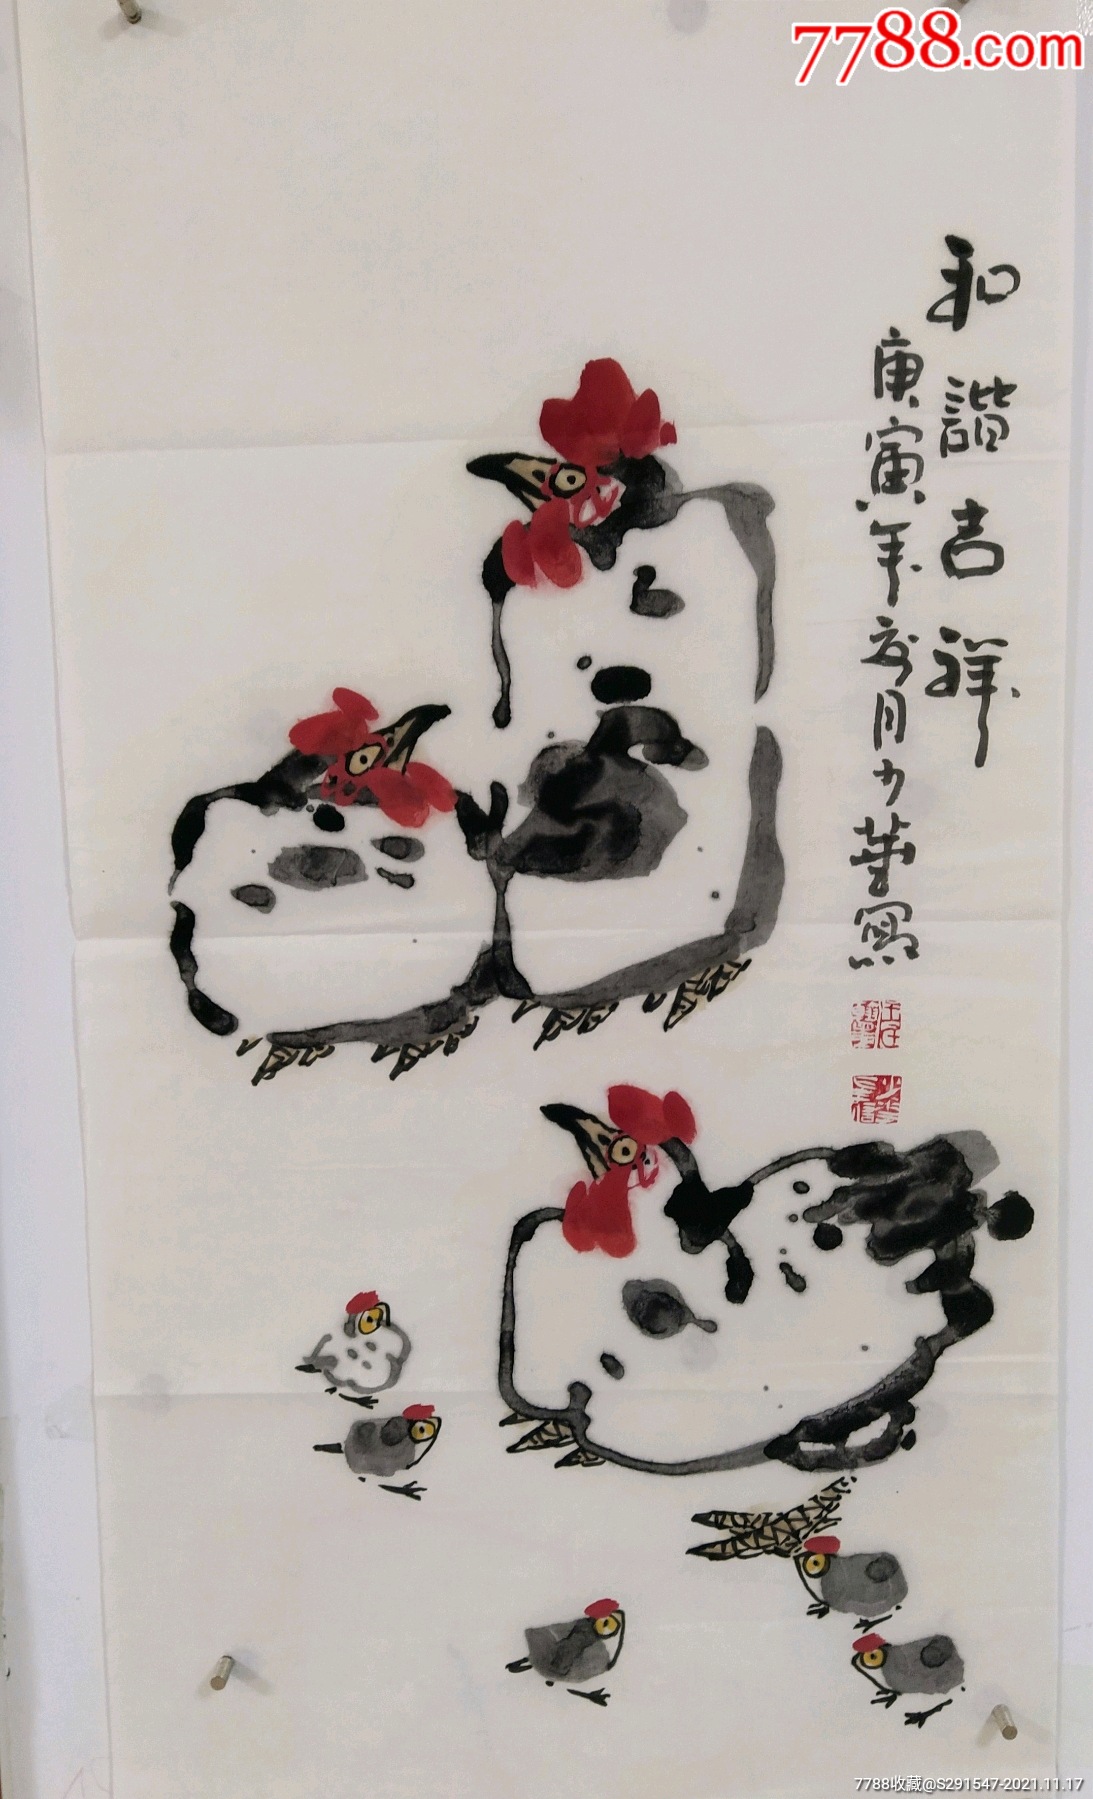 7788.com
和諧吉祥
庚寅年岁月少華寫
7788收藏@S291547-2021.11.17